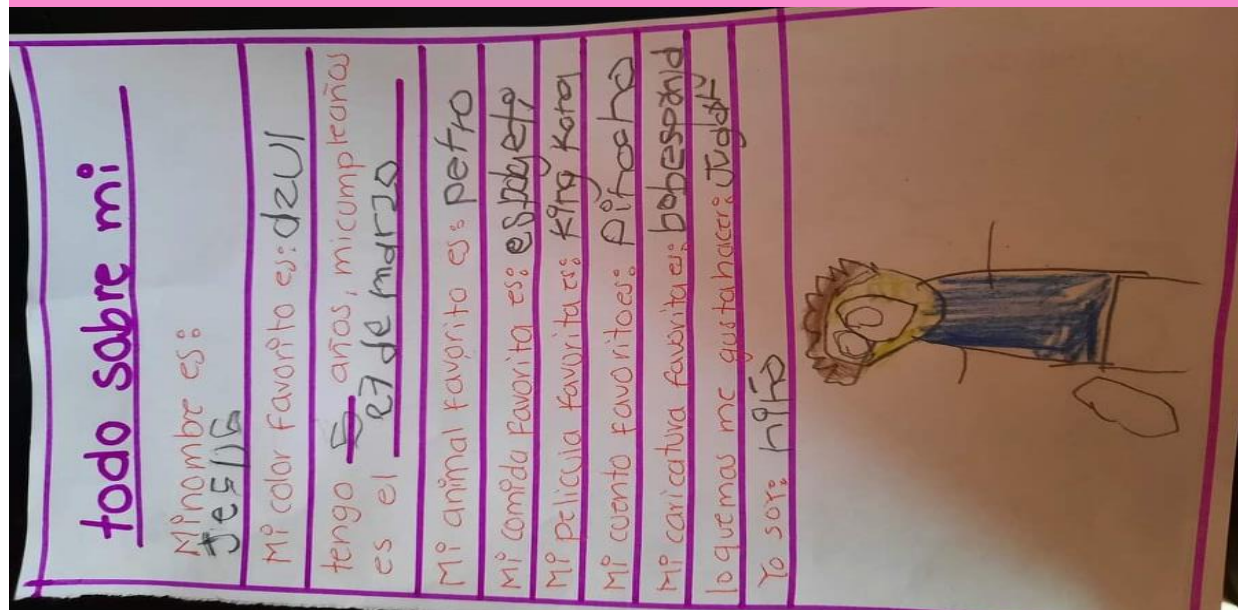 todo sobre mi
Mi nombre es:
Jesus
Mi color favorito es: dzul
tengo 5 años, mi cumpleaños
es el 27 de marzo
Mi animal favorito es: petro
Mi comida favorita es: espageti
Mi pelicula favorita es: King Kong
Mi cuento favorito es: Pinocho
Mi caricatura favorita es: bobesponja
lo que mas me gusta hacer: Jugar
Yo soy: niño